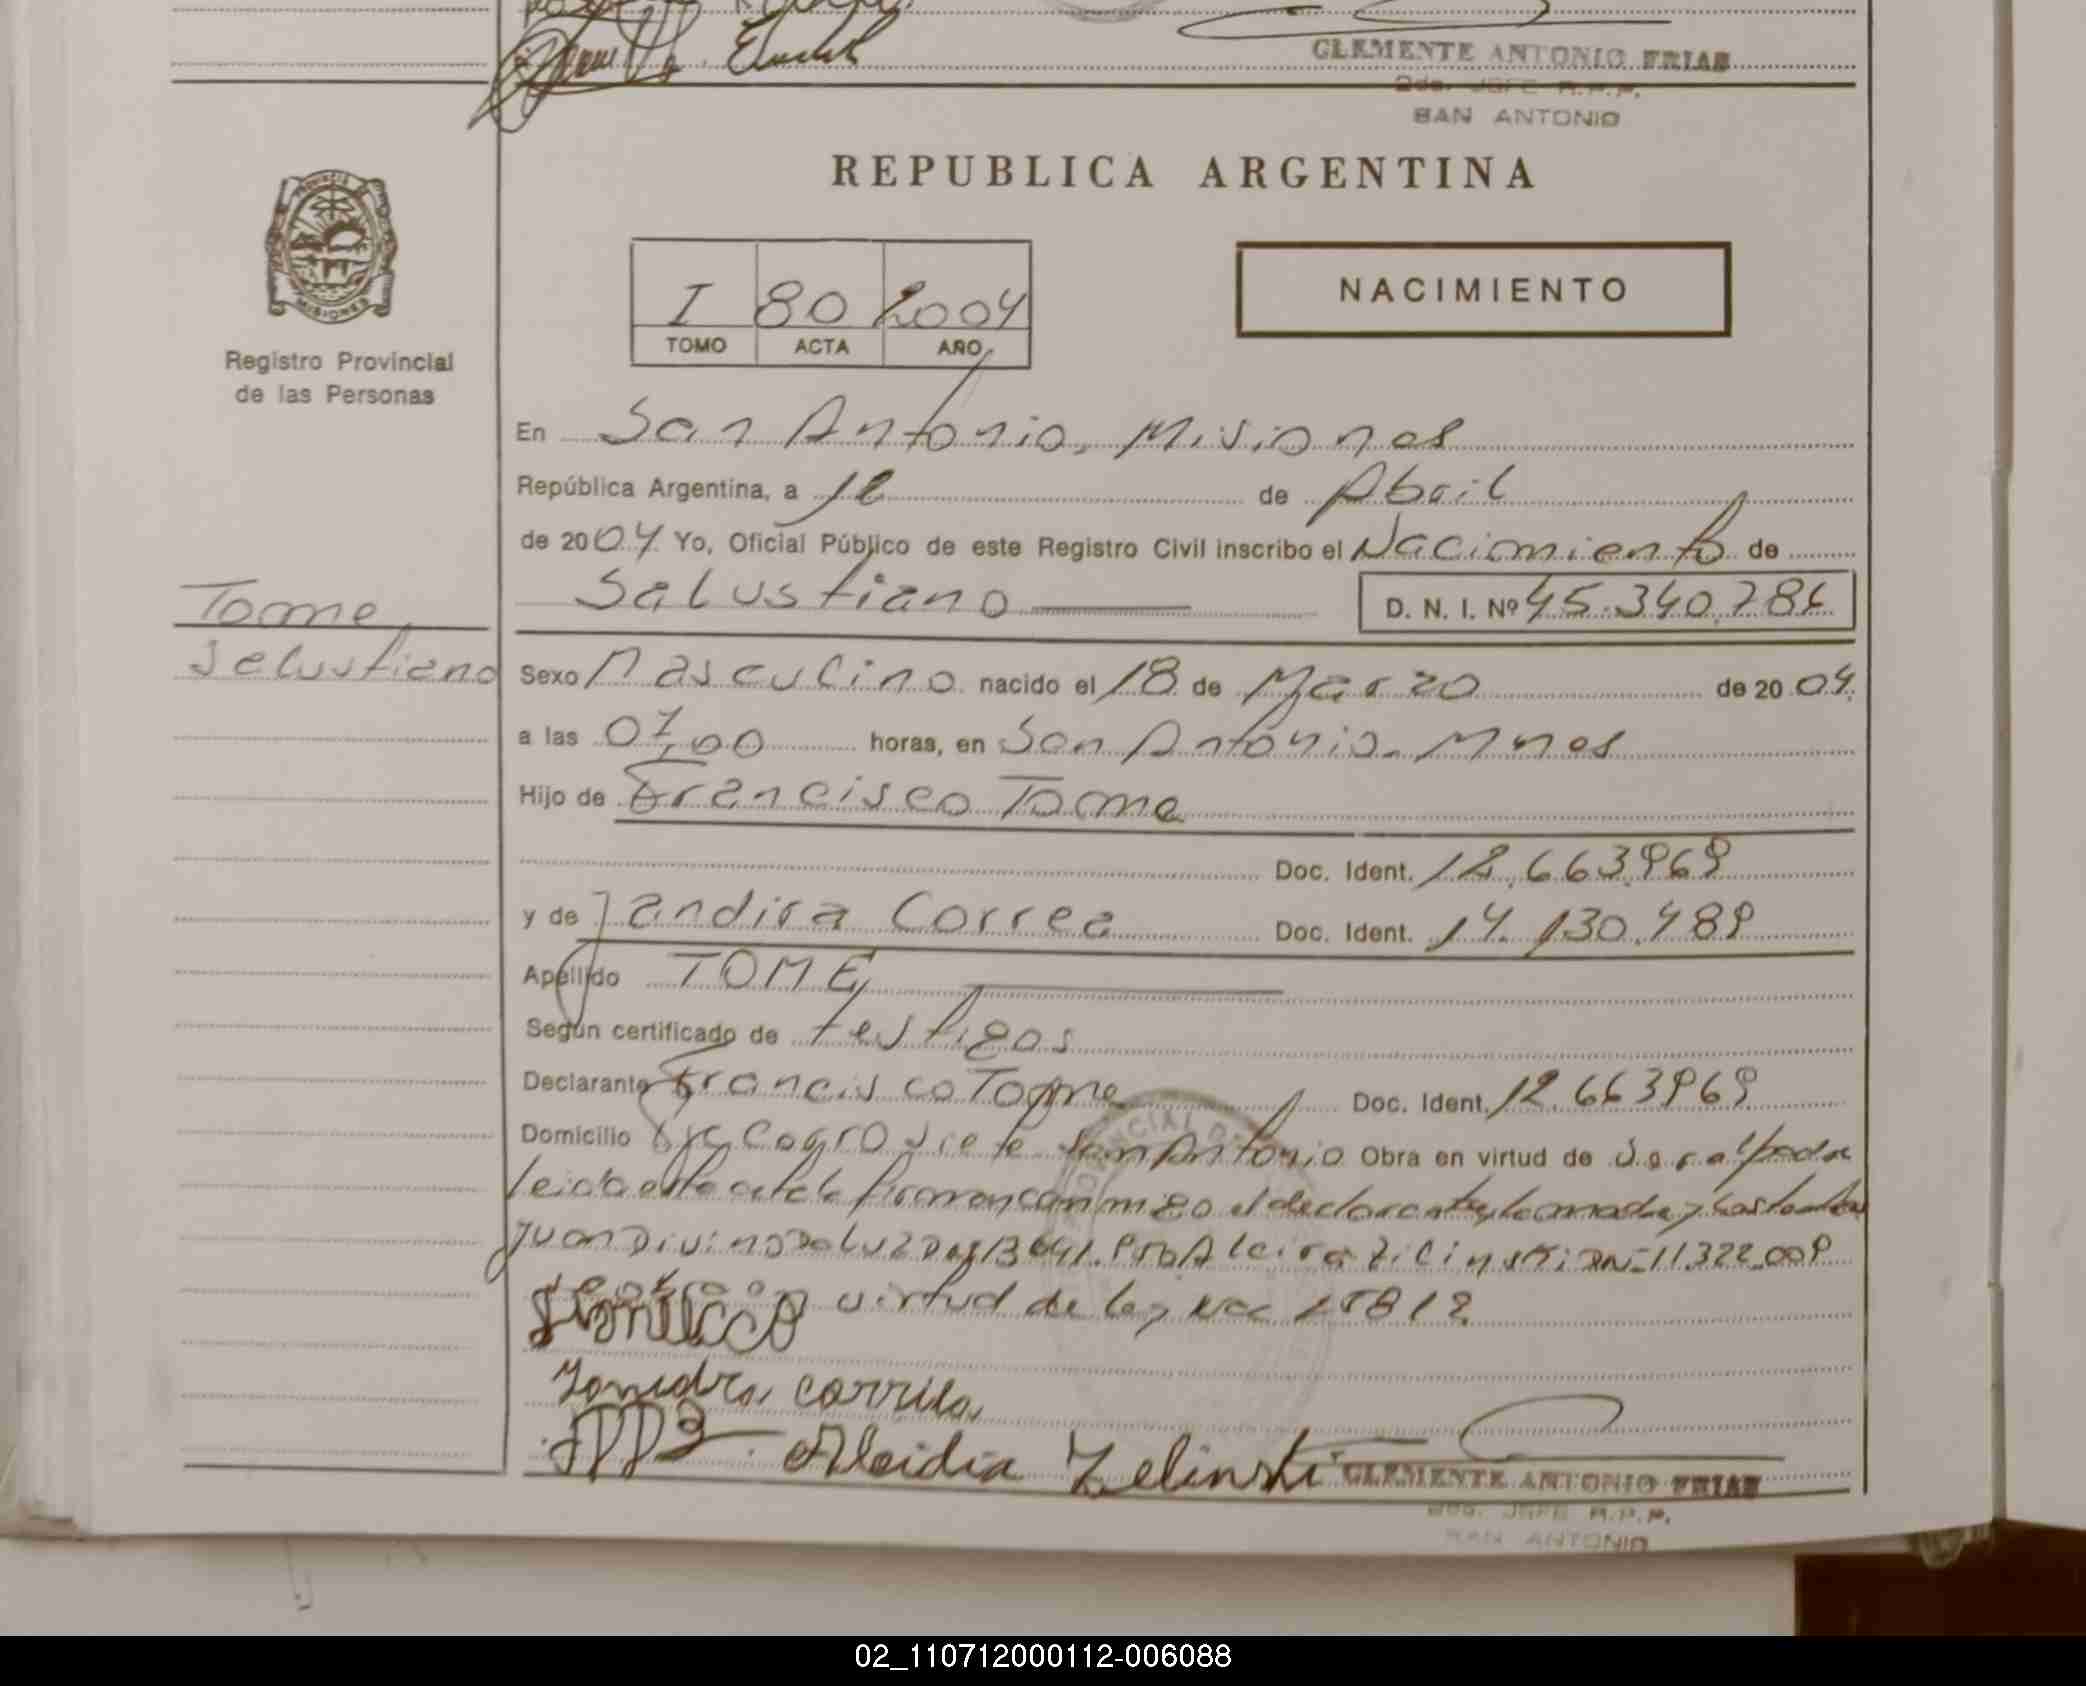 CLEMENTE ANTONIO FRIAS
2do. JEFE R.P.P.
SAN ANTONIO
REPUBLICA ARGENTINA
PROVINCIA
MISIONES
I 80 2004
TOMO ACTA AÑO
NACIMIENTO
Registro Provincial
de las Personas
En San Antonio, Misiones
República Argentina, a de Abril
de 2004 Yo, Oficial Público de este Registro Civil inscribo el Nacimiento de
Salustiano D. N. I. Nº 45.340.786
Tome
Salustiano
Sexo Masculino nacido el 18 de Marzo de 2004
a las 07,00 horas, en San Antonio. Mnes
Hijo de Francisco Tome
Doc. Ident. 12.663.969
y de Jandira Correa Doc. Ident. 14.130.489
Apellido TOME
Según certificado de testigos
Declarante Francisco Tome Doc. Ident. 12.663969
Domicilio siete San Antonio Obra en virtud de
leida esta acta la firman conmigo el declarante y los
Juan Divino Da Luz 11.322.009
virtud de ley
Alcidia Zelinski
CLEMENTE ANTONIO FRIAS
2do. JEFE R.P.P.
SAN ANTONIO
02_110712000112-006088